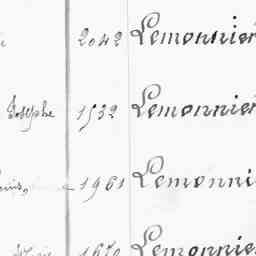 2042 Lemonnier
Josephe 1532 Lemonnier
1961 Lemonni
Lemonnie